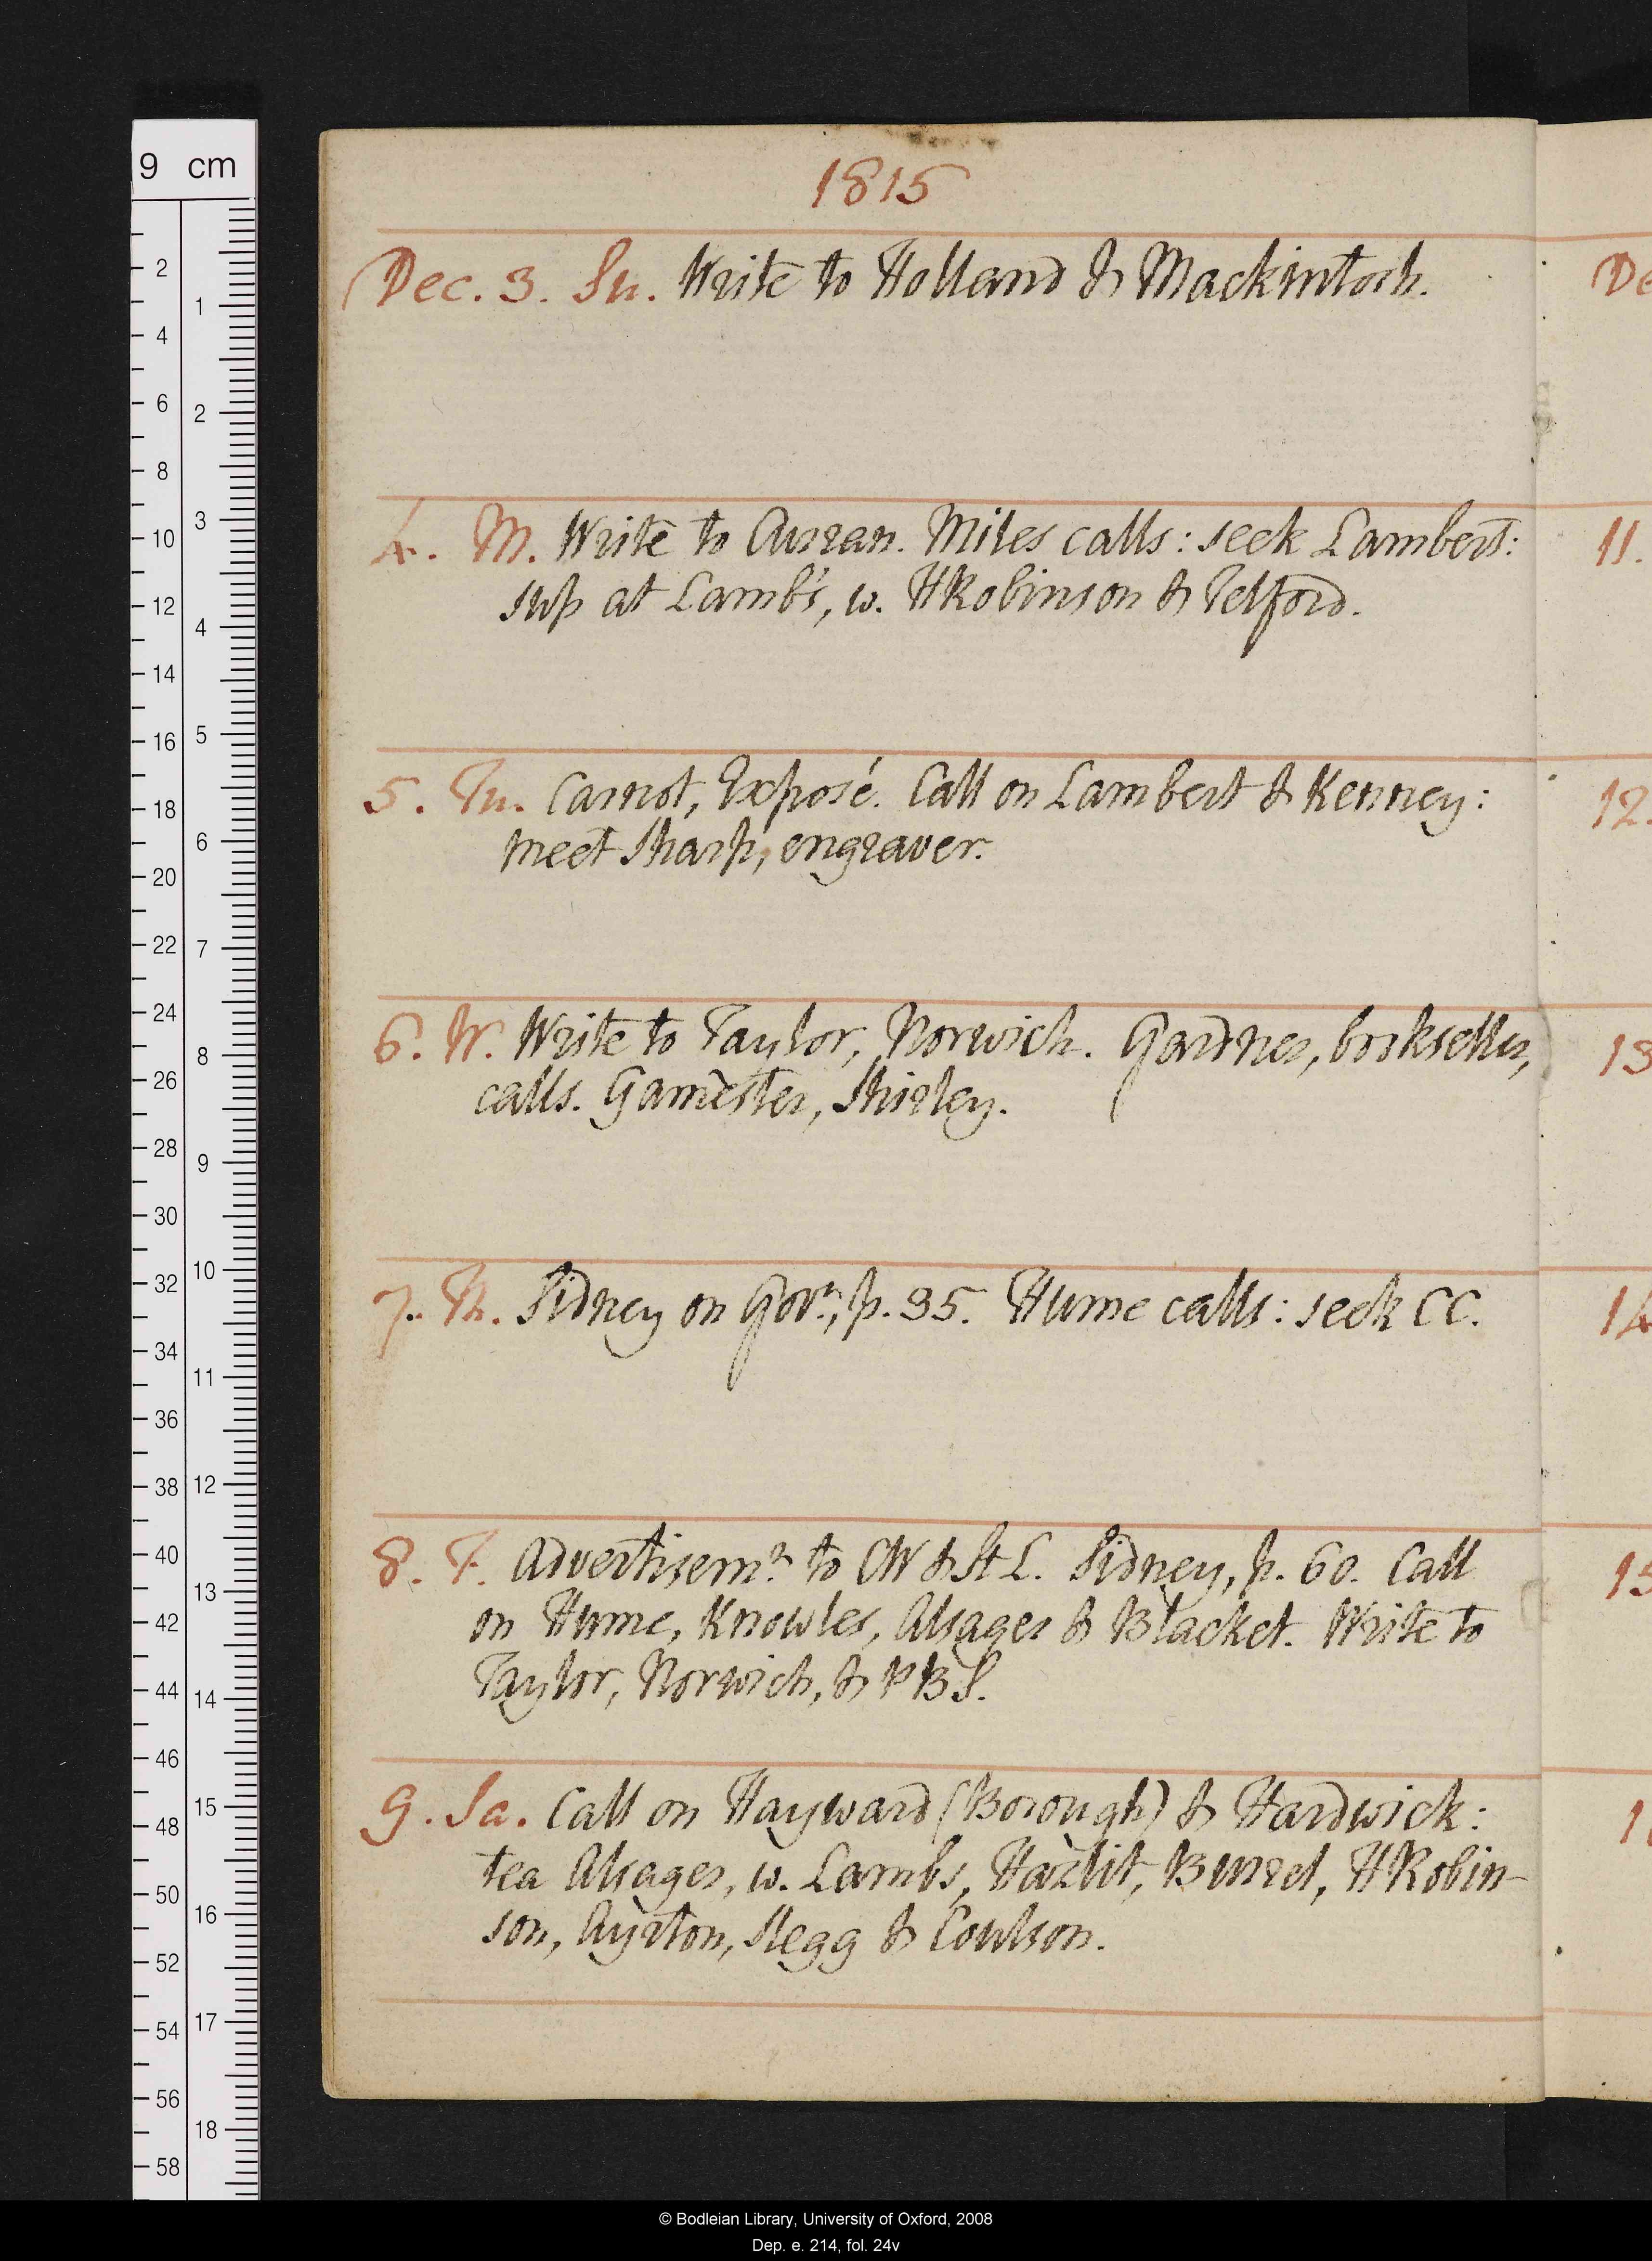 1815
Dec. 3. Su. Write to Holland & Mackintosh.
4. M. Write to Curran. Miles calls: seek Lambert:
sup at Lamb's, w. HRobinson & Telford.
5. Tu. Carnot, Exposé. Call on Lambert & Kenney:
meet Sharp, engraver.
6. W. Write to Taylor, Norwich. Gardner, bookseller,
calls. Gamester, Shirley.
7. Th. Sidney on Govt, p. 35. Hume calls: seek CC.
8. F. Advertisemt to CW & St L. Sidney, p. 60. Call
on Hume, Knowles, Alsager & Blacket. Write to
Taylor, Norwich, & PBS.
9. Sa. Call on Hayward (Borough) & Hardwick:
tea Alsager, w. Lambs, Hazlit, Burrel, HRobin-
son, Ayrton, Slegg & Coulson.
De
11.
12.
13
14
15
1
9 cm
2
4
6
8
10
12
14
16
18
20
22
24
26
28
30
32
34
36
38
40
42
44
46
48
50
52
54
56
58
1
2
3
4
5
6
7
8
9
10
11
12
13
14
15
16
17
18
© Bodleian Library, University of Oxford, 2008
Dep. e. 214, fol. 24v